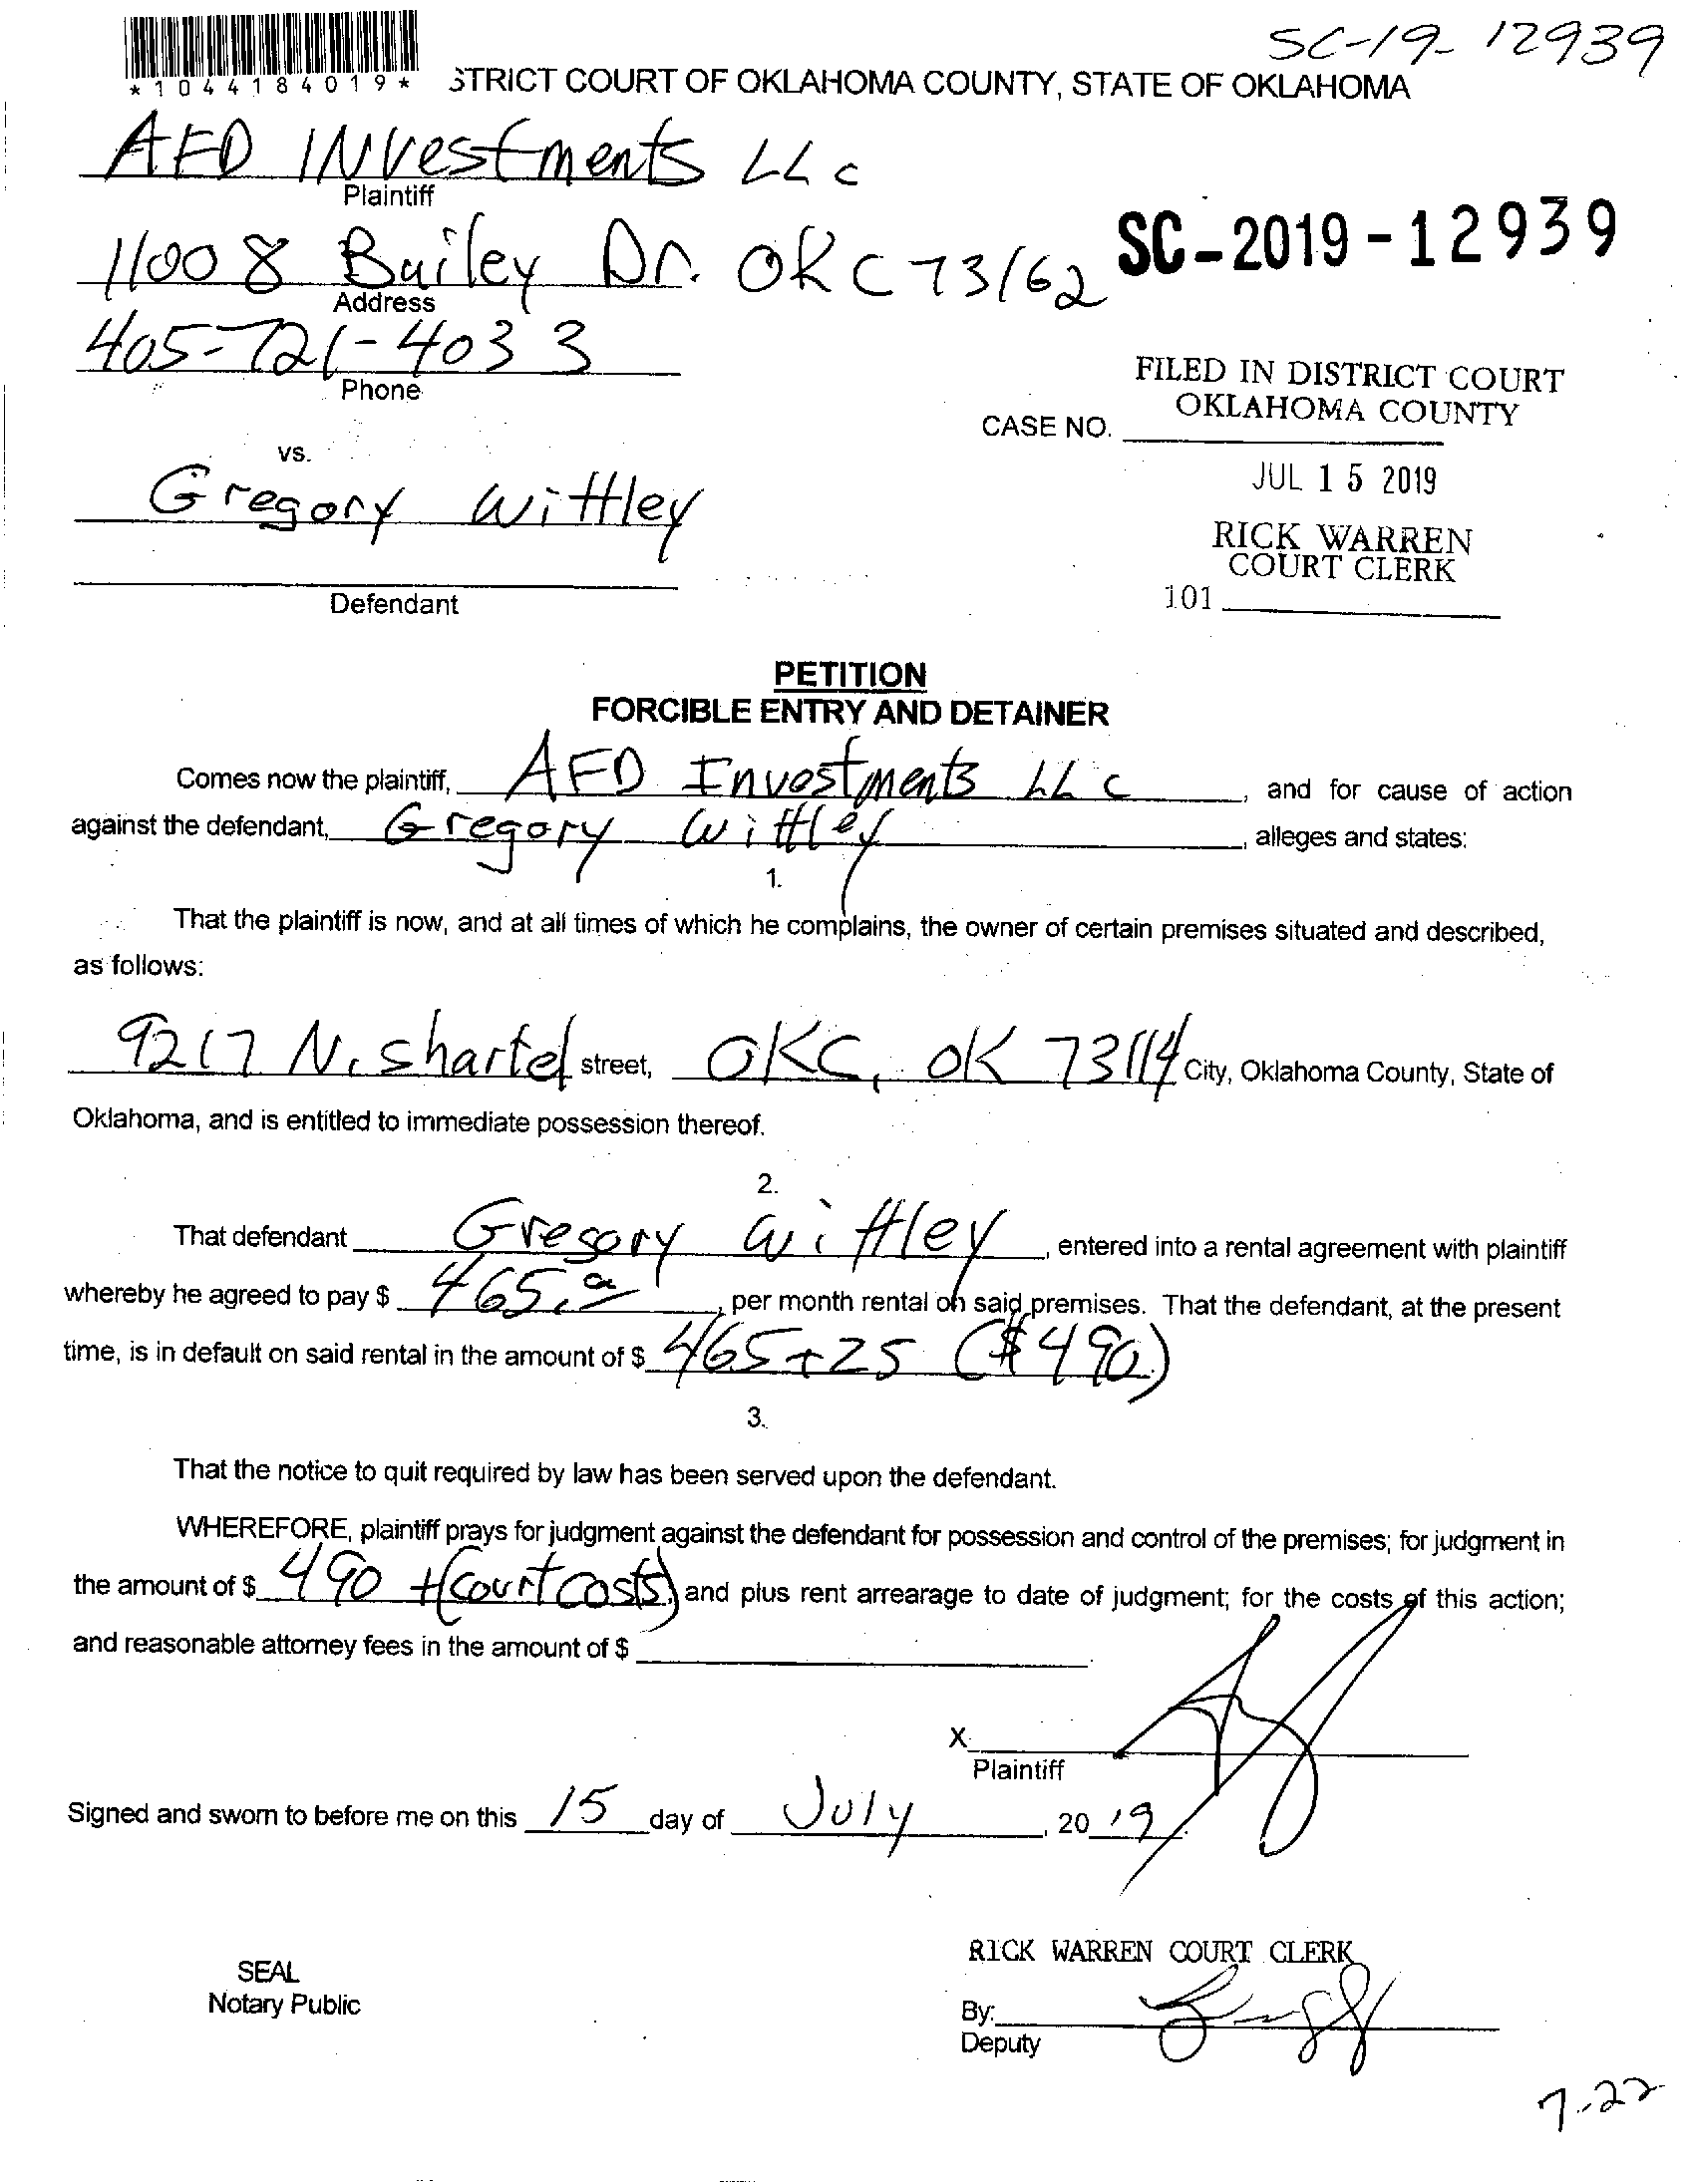 SC-19-12939
*1044184019*
STRICT COURT OF OKLAHOMA COUNTY, STATE OF OKLAHOMA
AFD INVestments LLc
Plaintiff
11008 Bailey Dr. OKC 73162
SC-2019-12939
Address
405-721-4033
Phone
FILED IN DISTRICT COURT
OKLAHOMA COUNTY
CASE NO.
vs.
JUL 15 2019
Gregory Wittley
RICK WARREN
COURT CLERK
Defendant
101
PETITION
FORCIBLE ENTRY AND DETAINER
Comes now the plaintiff, AFD Investments LLC, and for cause of action
against the defendant, Gregory Wittley, alleges and states:
1.
That the plaintiff is now, and at all times of which he complains, the owner of certain premises situated and described,
as follows:
9217 N. Shartel street, OKC, OK 73114 City, Oklahoma County, State of
Oklahoma, and is entitled to immediate possession thereof.
2.
That defendant Gregory Wittley, entered into a rental agreement with plaintiff
whereby he agreed to pay $ 465. , per month rental on said premises. That the defendant, at the present
time, is in default on said rental in the amount of $ 465+25 ($490)
3.
That the notice to quit required by law has been served upon the defendant.
WHEREFORE, plaintiff prays for judgment against the defendant for possession and control of the premises; for judgment in
the amount of $ 490 +(Court Costs), and plus rent arrearage to date of judgment; for the costs of this action;
and reasonable attorney fees in the amount of $
X
Plaintiff
Signed and sworn to before me on this 15 day of July, 2019.
RICK WARREN COURT CLERK
SEAL
Notary Public
By:
Deputy
7-22